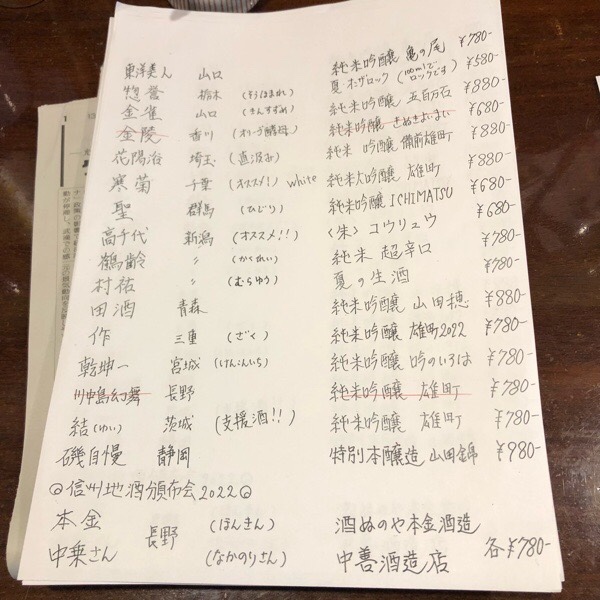 東洋美人 山口 純米吟醸 亀の尾 ¥780-
惣誉 栃木 (そうほまれ) 夏 オンザロック (100mlでロックです) ¥580-
金雀 山口 (きんすずめ) 純米吟醸 五百万石 ¥880-
金陵 香川 (オリーブ酵母) 純米吟醸 さぬきよいまい ¥680-
花陽浴 埼玉 (直汲み) 純米 吟醸 備前雄町 ¥880-
寒菊 千葉 (オススメ!) white 純米大吟醸 雄町 ¥880-
聖 群馬 (ひじり) 純米吟醸 ICHIMATSU ¥680-
高千代 新潟 (オススメ!!) 〈朱〉 コウリュウ ¥680-
鶴齢 〃 (かくれい) 純米 超辛口 ¥780-
村祐 〃 (むらゆう) 夏の生酒 ¥780-
田酒 青森 純米吟醸 山田穂 ¥880-
作 三重 (ざく) 純米吟醸 雄町2022 ¥780-
乾坤一 宮城 (けんこんいち) 純米吟醸 吟のいろは ¥780-
川中島幻舞 長野 純米吟醸 雄町 ¥780-
結(ゆい) 茨城 (支援酒!!) 純米吟醸 雄町 ¥780-
磯自慢 静岡 特別本醸造 山田錦 ¥980-
信州地酒頒布会2022
本金 長野 (ほんきん) 酒ぬのや本金酒造
中乗さん (なかのりさん) 中善酒造店 各¥780-